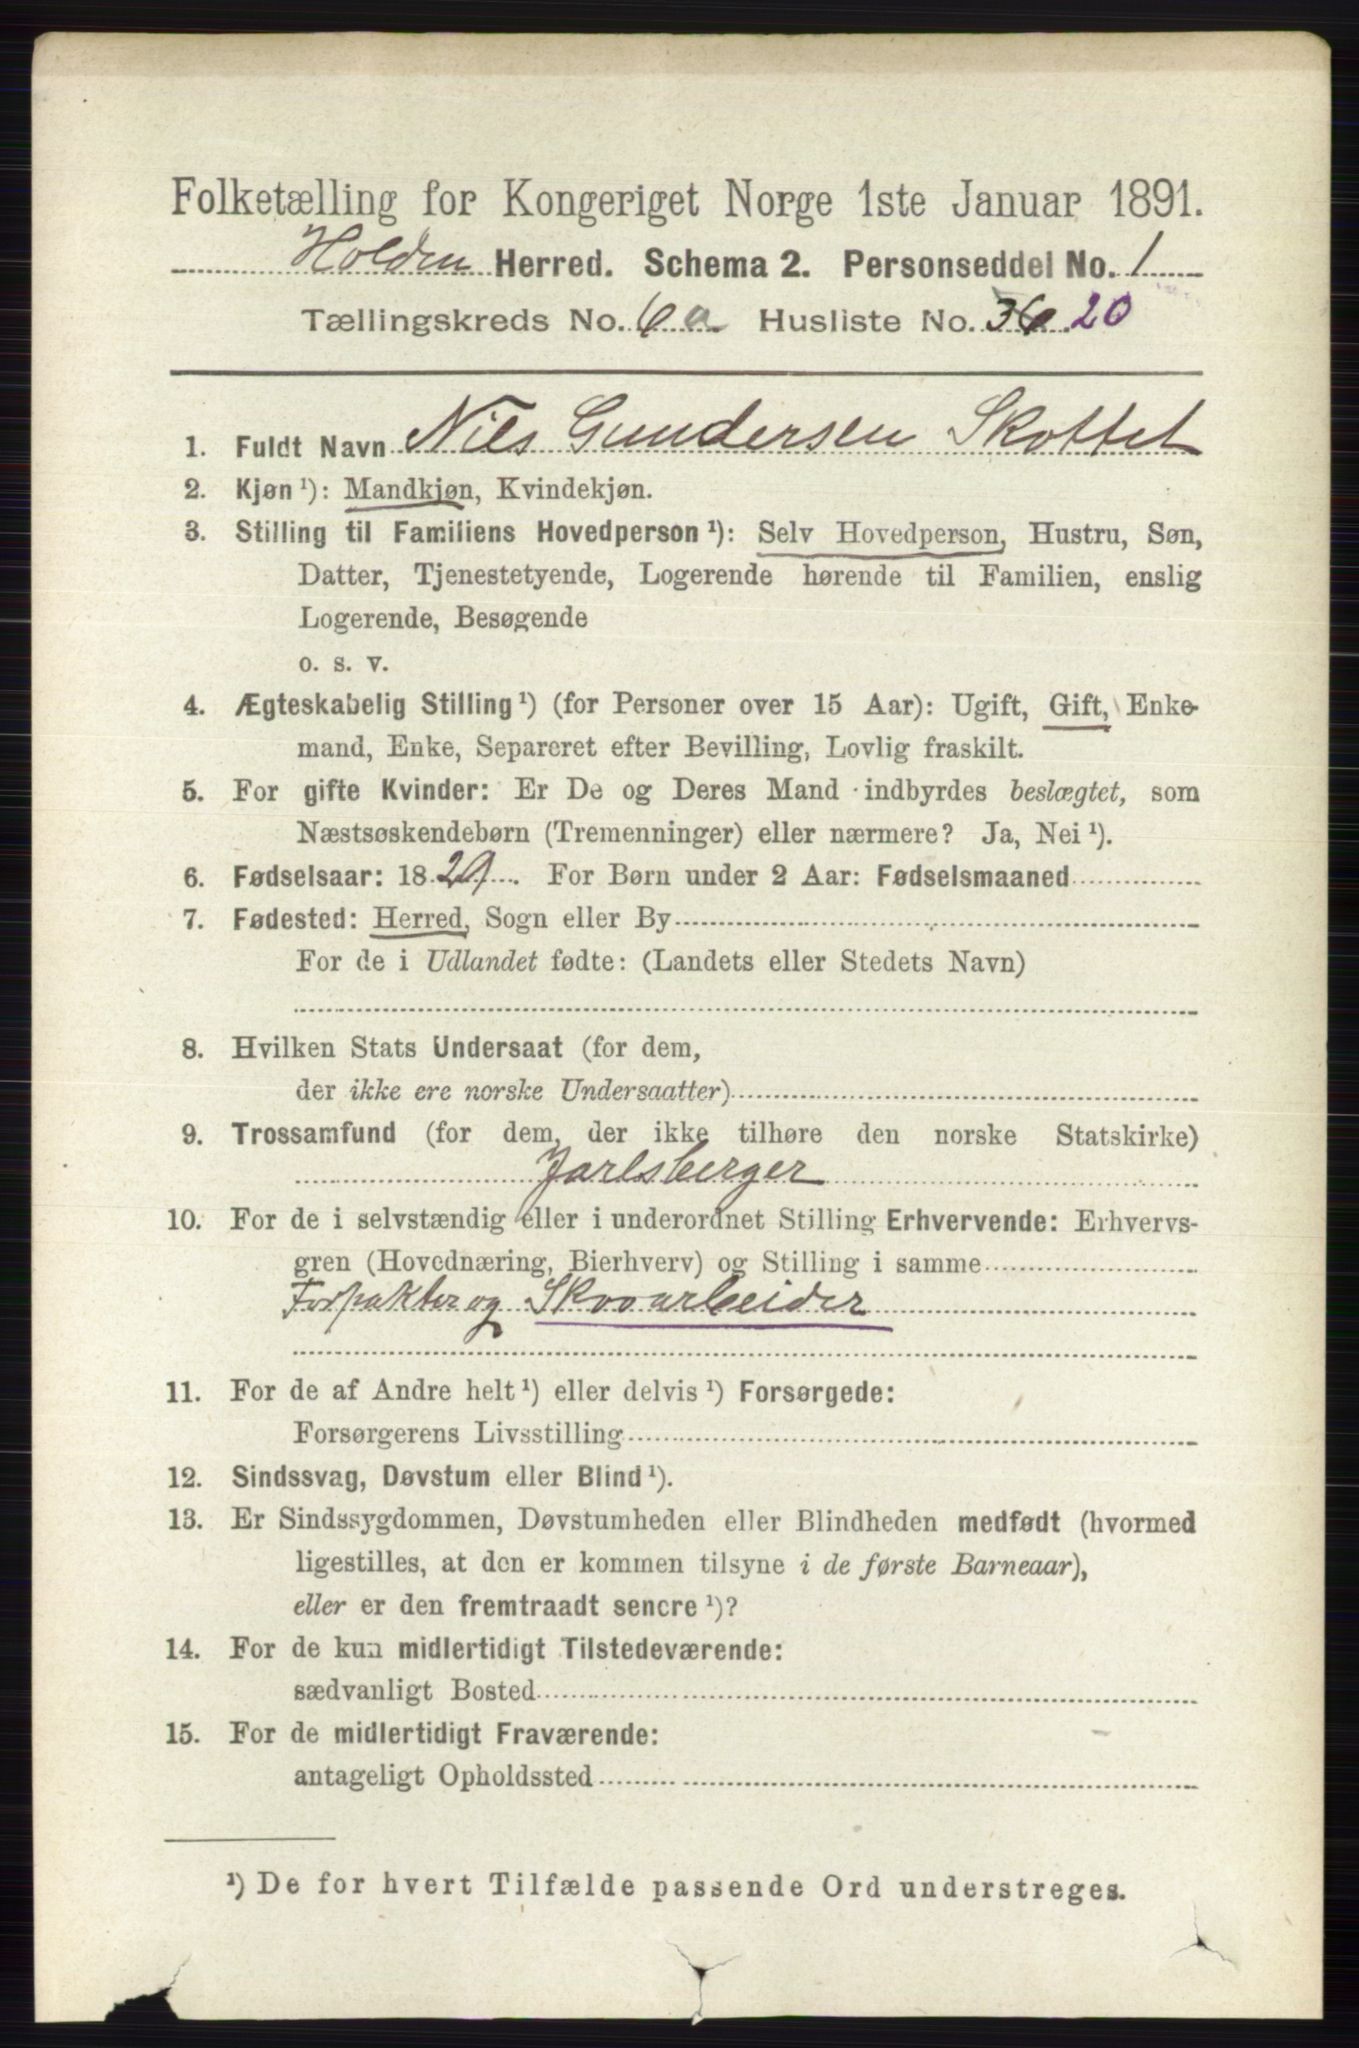 Folketælling for Kongeriget Norge 1ste Januar 1891.
Holden Herred. Schema 2. Personseddel No. 1
Tællingskreds No. 6a Husliste No. 36 20
1. Fuldt Navn Nils Gundersen Skottet
2. Kjøn ¹): Mandkjøn, Kvindekjøn.
3. Stilling til Familiens Hovedperson ¹): Selv Hovedperson, Hustru, Søn,
Datter, Tjenestetyende, Logerende hørende til Familien, enslig
Logerende, Besøgende
o. s. v.
4. Ægteskabelig Stilling ¹) (for Personer over 15 Aar): Ugift, Gift, Enke-
mand, Enke, Separeret efter Bevilling, Lovlig fraskilt.
5. For gifte Kvinder: Er De og Deres Mand indbyrdes beslægtet, som
Næstsøskendebørn (Tremenninger) eller nærmere? Ja, Nei ¹).
6. Fødselsaar: 1829. For Børn under 2 Aar: Fødselsmaaned
7. Fødested: Herred, Sogn eller By
For de i Udlandet fødte: (Landets eller Stedets Navn)
8. Hvilken Stats Undersaat (for dem,
der ikke ere norske Undersaatter)
9. Trossamfund (for dem, der ikke tilhøre den norske Statskirke)
Jarlsberger
10. For de i selvstændig eller i underordnet Stilling Erhvervende: Erhvervs-
gren (Hovednæring, Bierhverv) og Stilling i samme
Forpakter og Skovarbeider
11. For de af Andre helt ¹) eller delvis ¹) Forsørgede:
Forsørgerens Livsstilling
12. Sindssvag, Døvstum eller Blind ¹).
13. Er Sindssygdommen, Døvstumheden eller Blindheden medfødt (hvormed
ligestilles, at den er kommen tilsyne i de første Barneaar),
eller er den fremtraadt senere ¹)?
14. For de kun midlertidigt Tilstedeværende:
sædvanligt Bosted
15. For de midlertidigt Fraværende:
antageligt Opholdssted
¹) De for hvert Tilfælde passende Ord understreges.